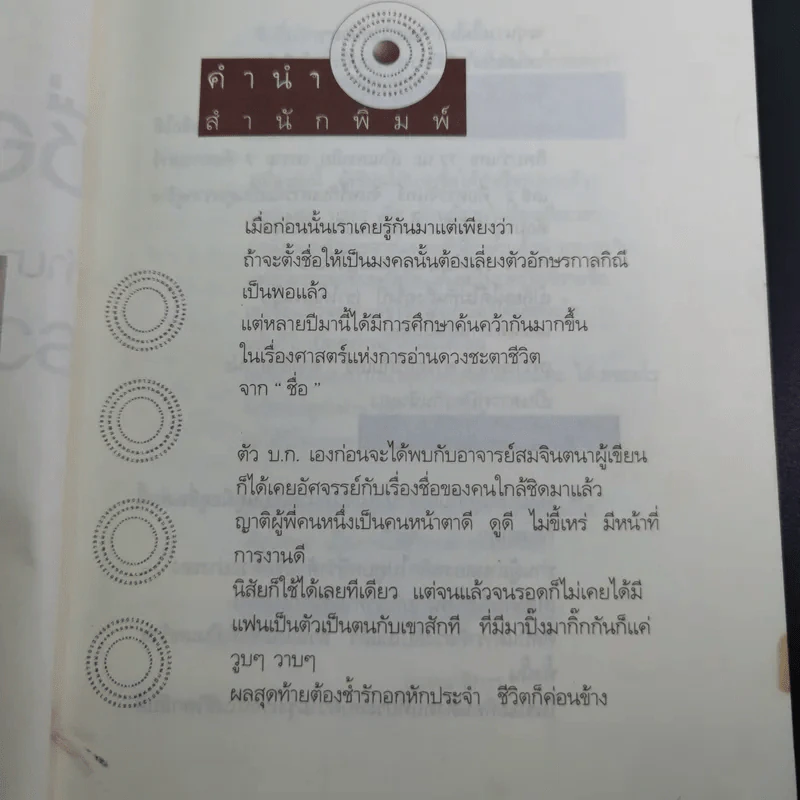 คำนำ
สำนักพิมพ์
เมื่อก่อนนั้นเราเคยรู้กันมาแต่เพียงว่า
ถ้าจะตั้งชื่อให้เป็นมงคลนั้นต้องเลี่ยงตัวอักษรกาลกิณี
เป็นพอแล้ว
แต่หลายปีมานี้ได้มีการศึกษาค้นคว้ากันมากขึ้น
ในเรื่องศาสตร์แห่งการอ่านดวงชะตาชีวิต
จาก “ ชื่อ ”
ตัว บ.ก. เองก่อนจะได้พบกับอาจารย์สมจินตนาผู้เขียน
ก็ได้เคยอัศจรรย์กับเรื่องชื่อของคนใกล้ชิดมาแล้ว
ญาติผู้พี่คนหนึ่งเป็นคนหน้าตาดี ดูดี ไม่ขี้เหร่ มีหน้าที่
การงานดี
นิสัยก็ใช้ได้เลยทีเดียว แต่จนแล้วจนรอดก็ไม่เคยได้มี
แฟนเป็นตัวเป็นตนกับเขาสักที ที่มีมาปิ๊งมากิ๊กกันก็แค่
วูบๆ วาบๆ
ผลสุดท้ายต้องช้ำรักอกหักประจำ ชีวิตก็ค่อนข้าง